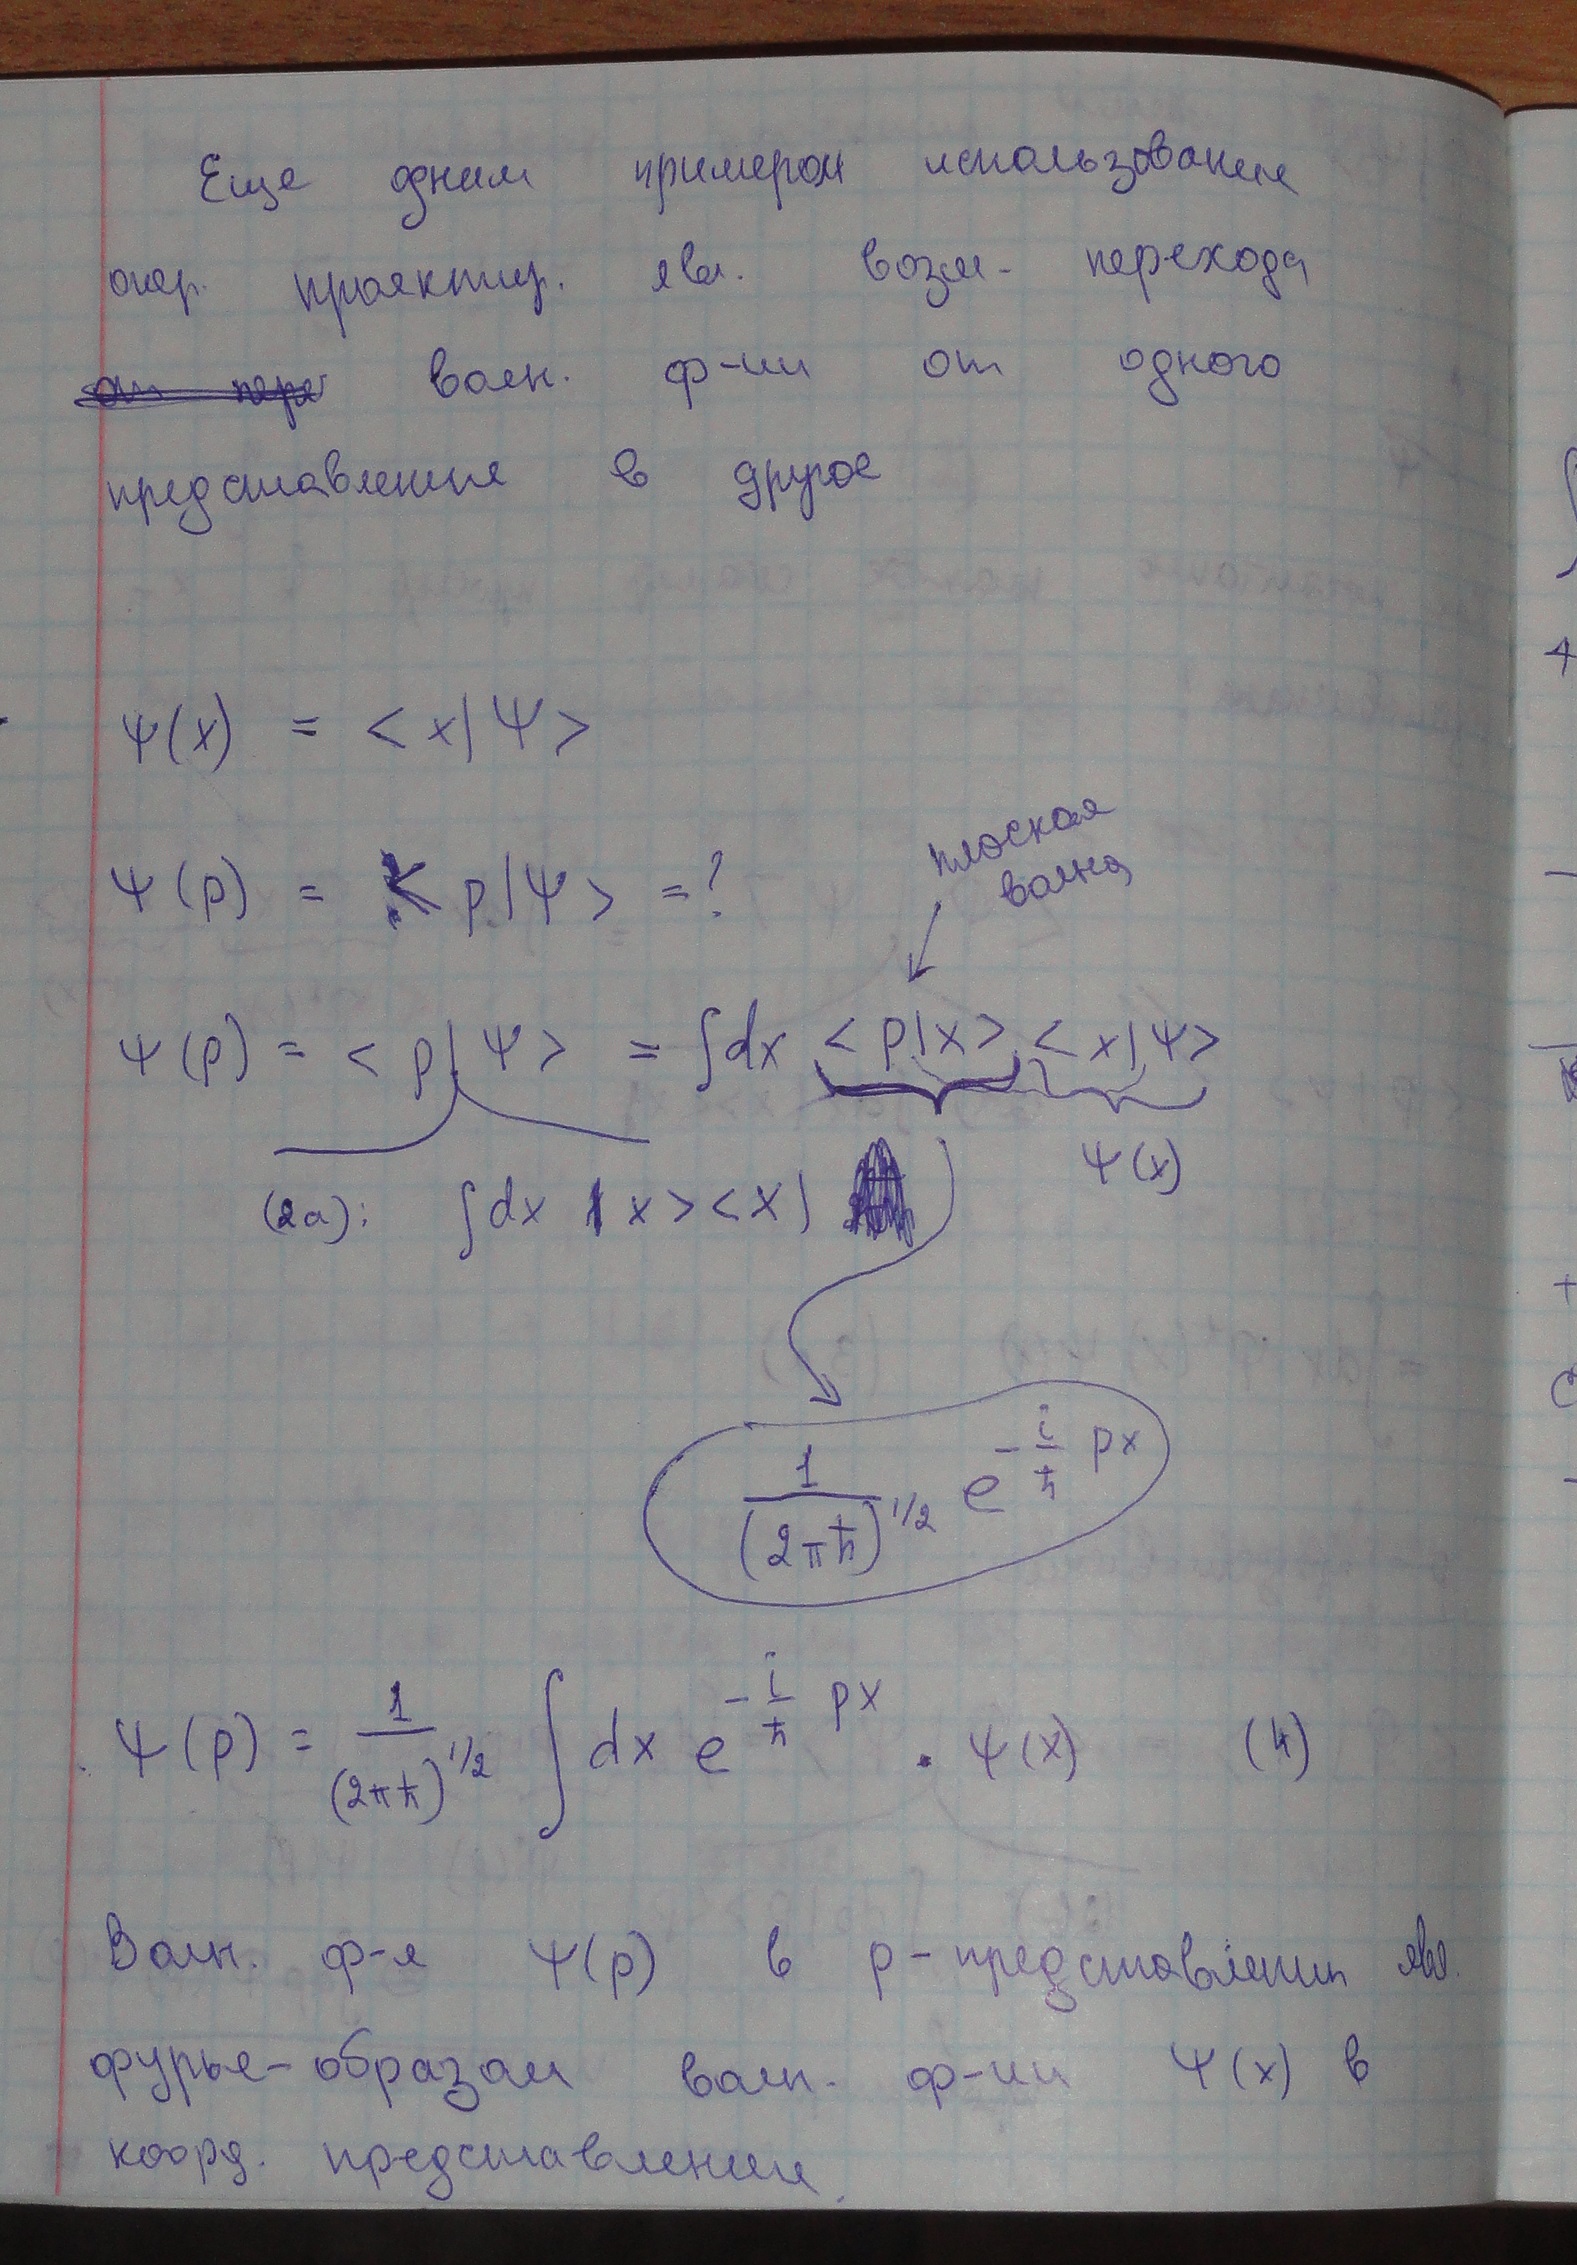 Еще одним примером использования
опер. проектир. явл. возм. перехода
волн. ф-ии от одного
представления в другое
Ψ(x) = <x|Ψ>
плоская
волна
Ψ(p) = <p|Ψ> = ?
Ψ(p) = <p|Ψ> = ∫dx <p|x> <x|Ψ>
Ψ(x)
(2а): ∫dx |x><x|
1/(2πħ)^1/2 e^(-i/ħ px)
Ψ(p) = 1/(2πħ)^1/2 ∫dx e^(-i/ħ px) · Ψ(x) (4)
Волн. ф-я Ψ(p) в p-представлении явл.
фурье-образом волн. ф-ии Ψ(x) в
коорд. представлении.